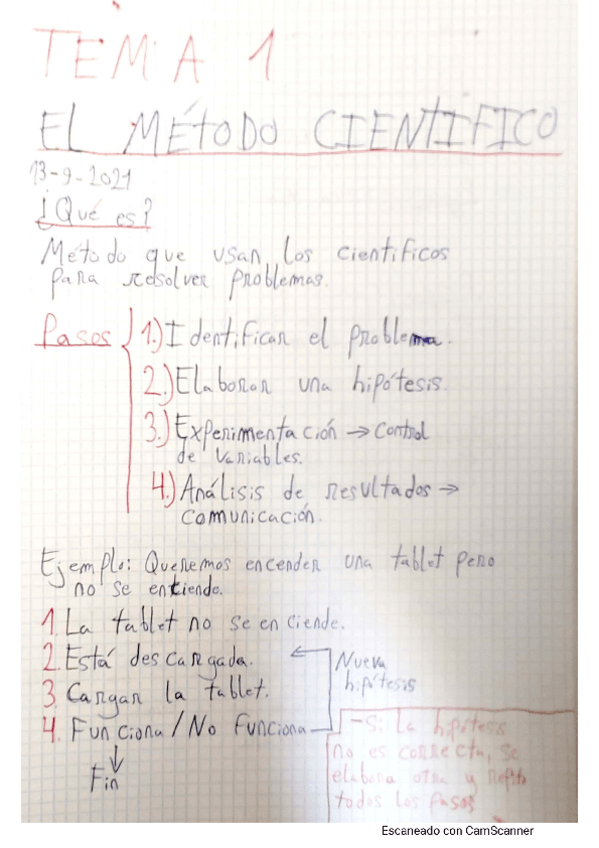 TEMA 1
EL MÉTODO CIENTÍFICO
13-9-2021
¿Qué es?
Método que usan los cientificos
para resolver problemas.
Pasos
1.) Identificar el problema.
2.) Elaborar una hipótesis.
3.) Experimentación → Control
de variables.
4.) Análisis de resultados →
comunicación.
Ejemplo: Queremos encender una tablet pero
no se enciende.
1. La tablet no se enciende.
2. Está descargada.
3. Cargar la tablet.
4. Funciona / No funciona
Nueva
hipótesis
Fin
- Si la hipótesis
no es correcta, se
elabora otra y repito
todos los pasos
Escaneado con CamScanner